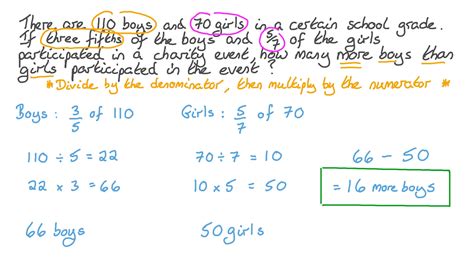 There are 110 boys and 70 girls in a certain school grade.
If three fifths of the boys and 5/7 of the girls
participated in a charity event, how many more boys than
girls participated in the event ?
* Divide by the denominator, then multiply by the numerator *
Boys : 3/5 of 110
Girls : 5/7 of 70
110 ÷ 5 = 22
70 ÷ 7 = 10
66 - 50
22 x 3 = 66
10 x 5 = 50
= 16 more boys
66 boys
50 girls